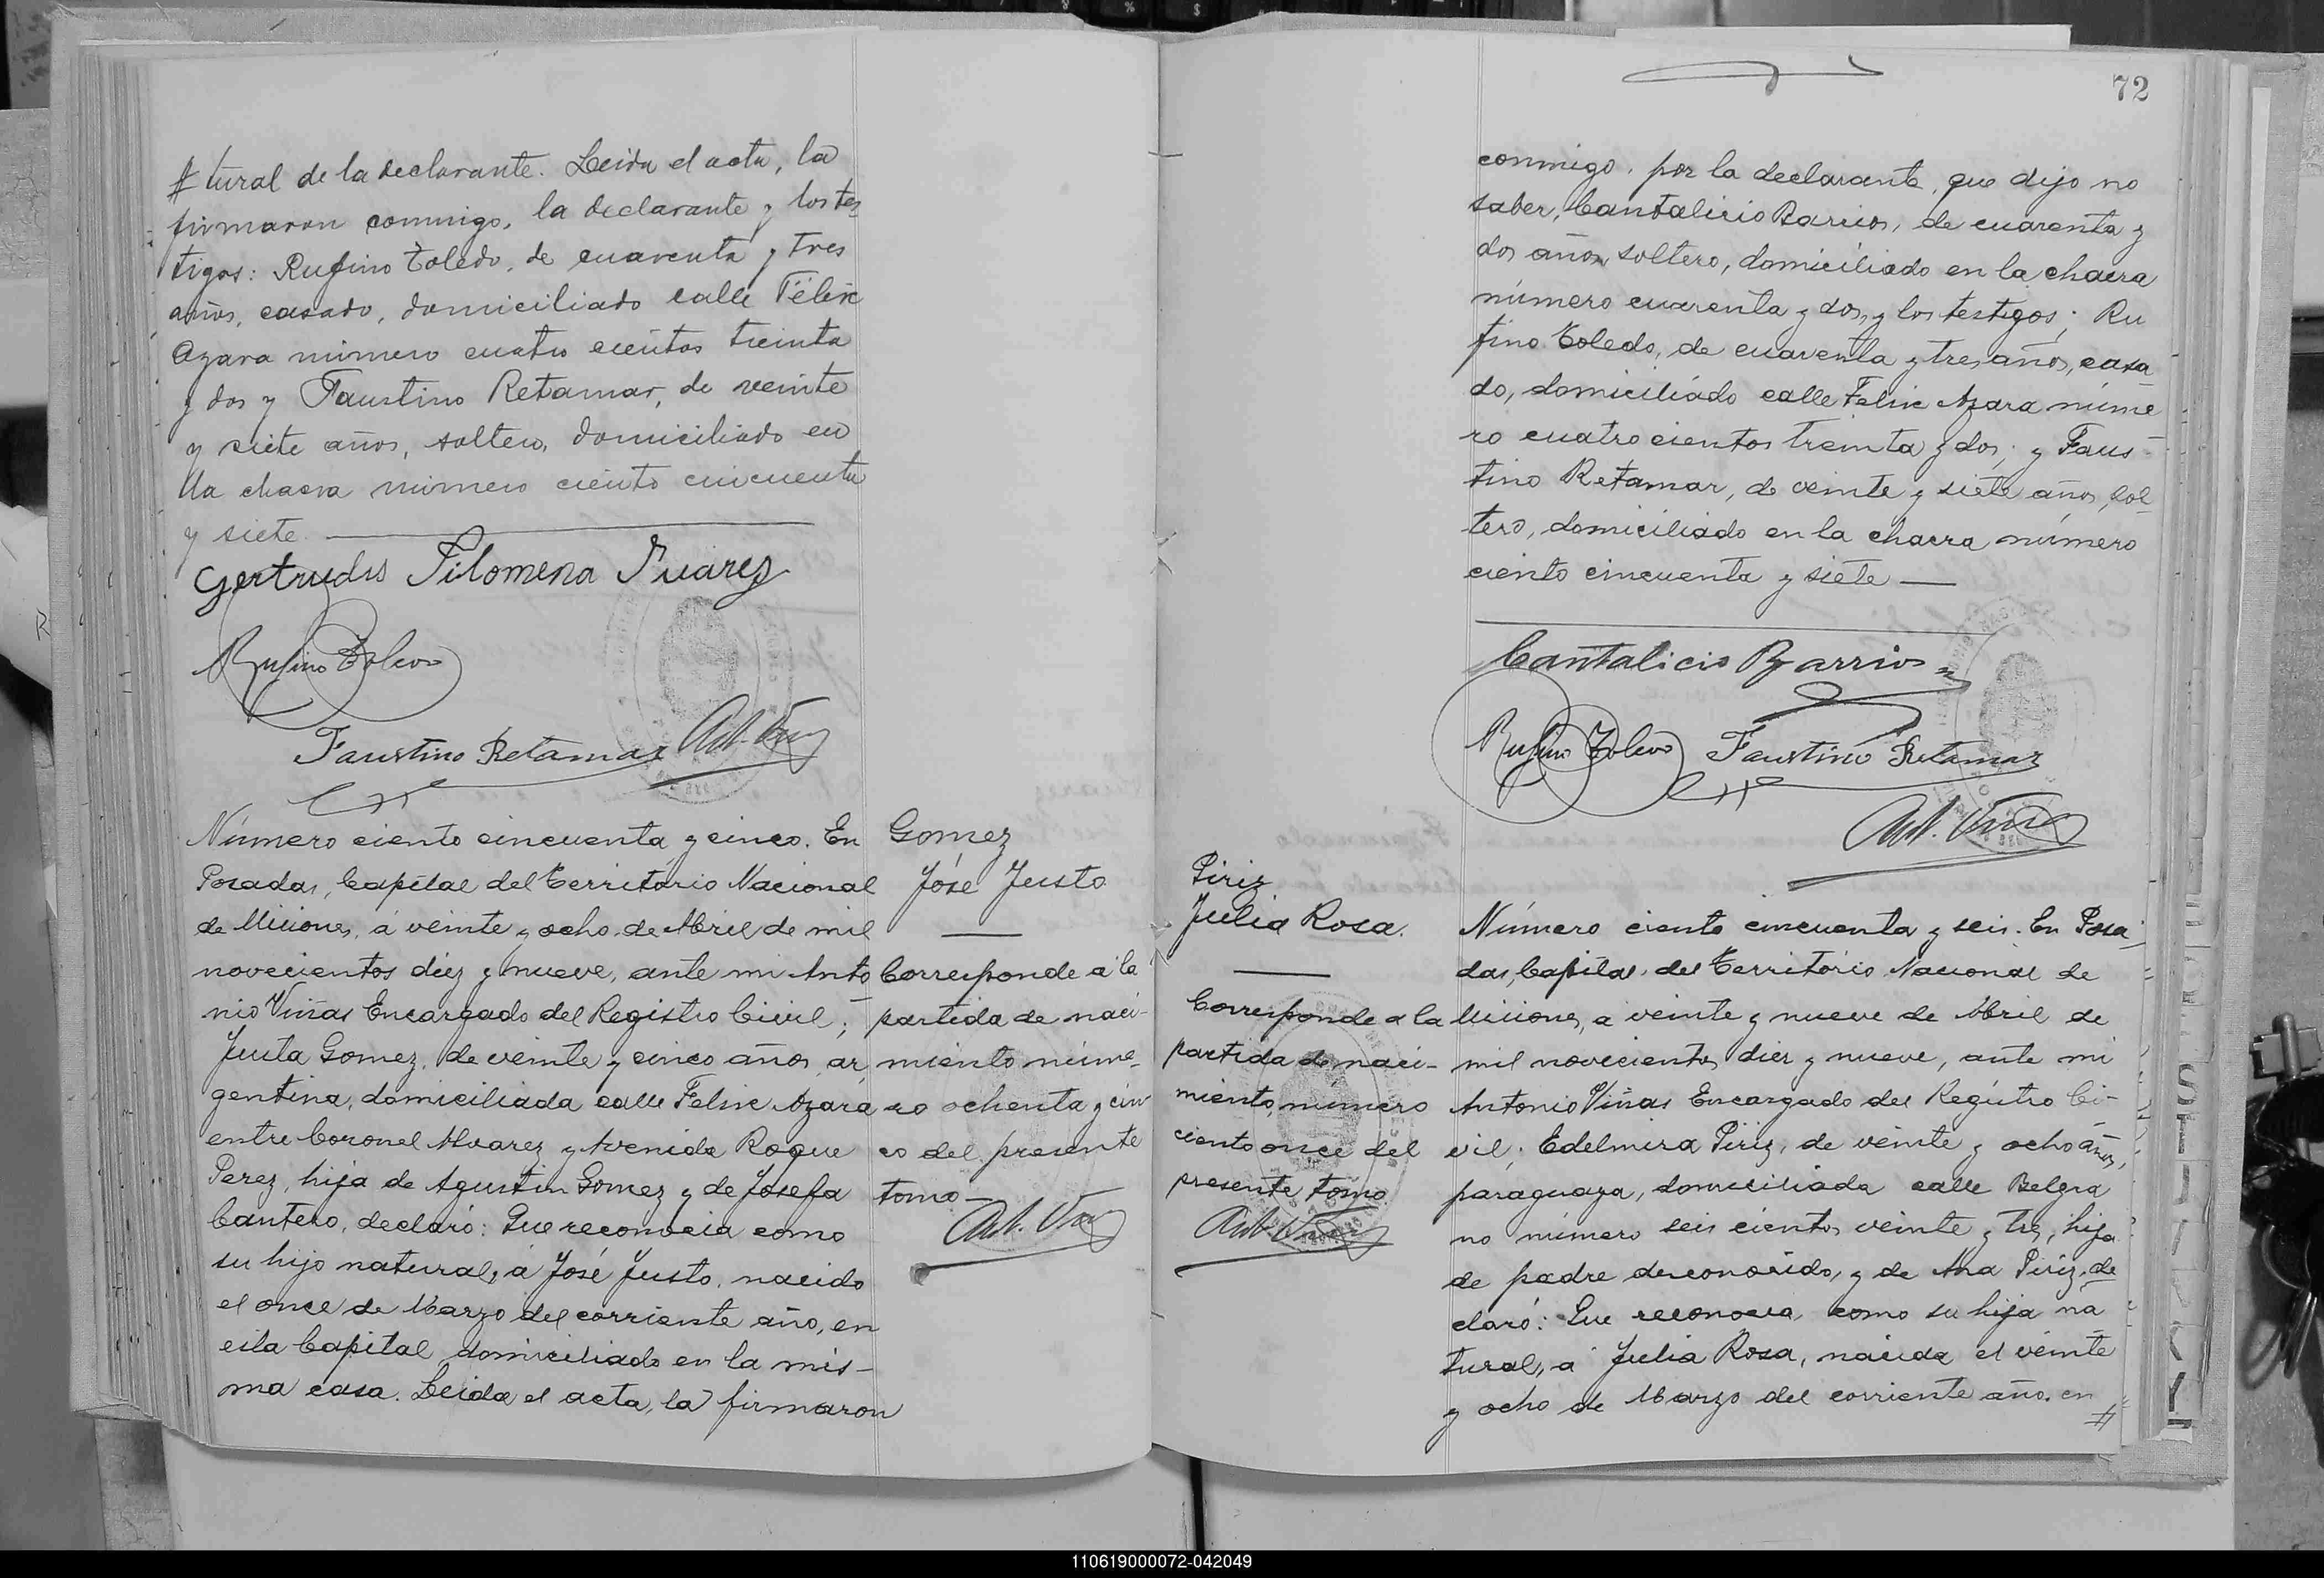 # tural de la declarante. Leida el acta, la
firmaron conmigo, la declarante y los tes
tigos: Rufino Toledo, de cuarenta y tres
años, casado, domiciliado calle Félix
Azara número cuatro cientos treinta
y dos y Faustino Retamar, de veinte
y siete años, soltero, domiciliado en
la chacra número ciento cincuenta
y siete
Gertrudis Filomena Suarez
Rufino Toledo
Faustino Retamar Ant. Viñas
Número ciento cincuenta y cinco. En
Posadas, Capital del Territorio Nacional
de Misiones, á veinte y ocho de Abril de mil
novecientos diez y nueve, ante mi Anto
nio Viñas Encargado del Registro Civil;
Justa Gomez, de veinte y cinco años, ar
gentina, domiciliada calle Felix Azara
entre Coronel Alvarez y Avenida Roque
Perez, hija de Agustin Gomez y de Josefa
Cantero, declaró: Que reconocia como
su hijo natural, á José Justo, nacido
el once de Marzo del corriente año, en
esta Capital, domiciliado en la mis-
ma casa. Leida el acta, la firmaron
Gomez
José Justo
Corresponde a la
partida de naci-
miento núme-
ro ochenta y cin
co del presente
tomo-
Ant. Viñas
72
conmigo, por la declarante, que dijo no
saber, Cantalicio Barrios, de cuarenta y
dos años, soltero, domiciliado en la chacra
número cuarenta y dos, y los testigos; Ru
fino Toledo, de cuarenta y tres años, casa
do, domiciliado calle Felix Azara núme
ro cuatro cientos treinta y dos; y Faus-
tino Retamar, de veinte y siete años, sol
tero, domiciliado en la chacra número
ciento cincuenta y siete —
Cantalicio Barrios
Rufino Toledo Faustino Retamar
Ant. Viñas
Piriz
Julia Rosa.
Corresponde a la
partida de naci-
miento, numero
ciento once del
presente tomo
Ant. Viñas
Número ciento cincuenta y seis. En Posa
das, Capital del Territorio Nacional de
Misiones, a veinte y nueve de Abril de
mil novecientos diez y nueve, ante mi
Antonio Viñas Encargado del Registro Ci-
vil; Edelmira Piriz, de veinte y ocho años,
paraguaya, domiciliada calle Belgra
no número seis cientos veinte y tres, hija
de padre desconocido, y de Ana Piriz, de
claró: Que reconocia, como su hija na
tural, a Julia Rosa, nacida el veinte
y ocho de Marzo del corriente año, en
#
110619000072-042049